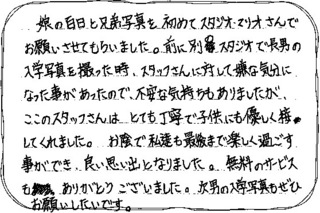 娘の百日と兄弟写真を初めてスタジオマリオさんで
お願いさせてもらいました。前に別スタジオで長男の
入学写真を撮った時、スタッフさんに対して嫌な気分に
なった事があったので、不安な気持ちもありましたが、
ここのスタッフさんは とても丁寧で子供にも優しく接
してくれました。 お陰で私達も最後まで楽しく過ごす
事ができ、良い思い出となりました。 無料のサービス
も ありがとうございました。次男の入学写真もぜひ
お願いしたいです。